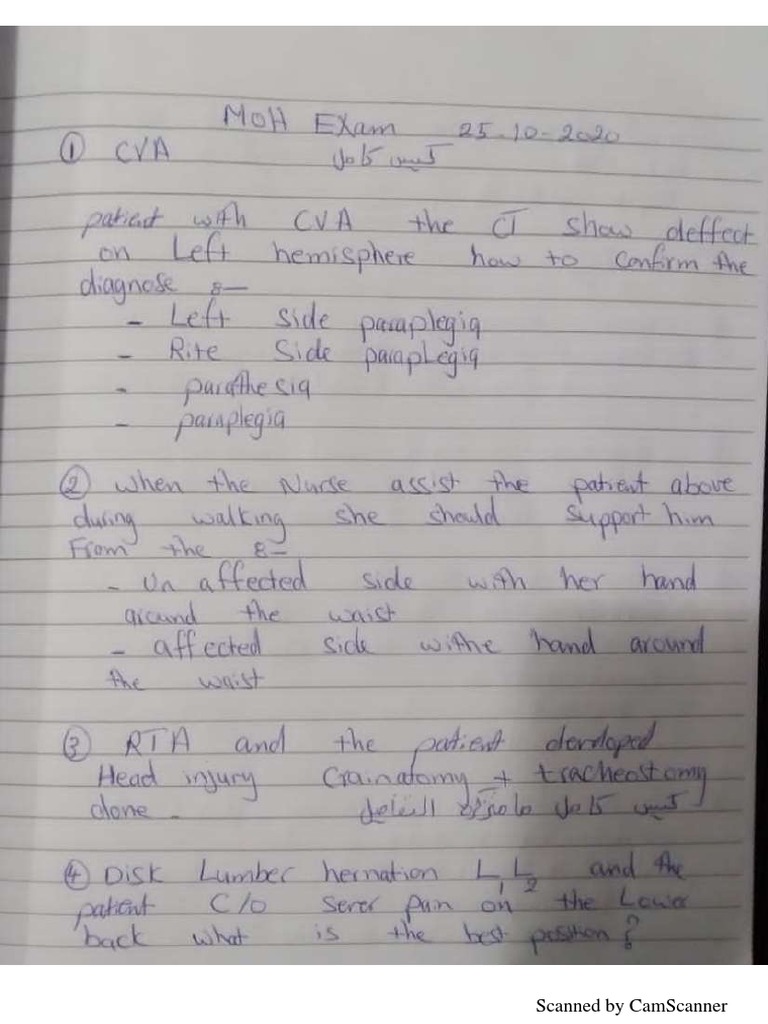 MOH Exam 25-10-2020
① CVA كيس كامل
patient with CVA the CT show deffect
on Left hemisphere how to confirm the
diagnose :-
- Left side paraplegia
- Rite Side parapLegia
- parathesia
- paraplegia
② when the Nurse assist the patient above
during walking she should support him
From the :-
- Un affected side with her hand
around the waist
- affected side withe hand around
the waist
③ RTA and the patient developed
Head injury Crainatomy + tracheostomy
done - كيس كامل التفاصيل
④ Disk Lumber hernation L1 L2 and the
patient C/O sever pain on the Lower
back what is the best position?
Scanned by CamScanner